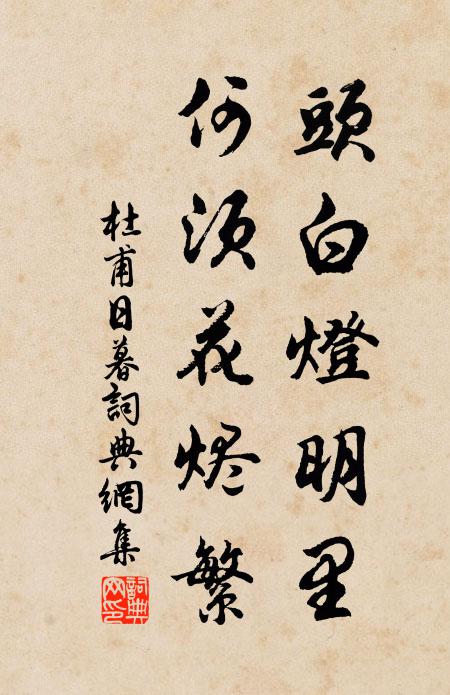 頭白燈明里
何須花烬繁
杜甫日暮詞典網集
詞典網印